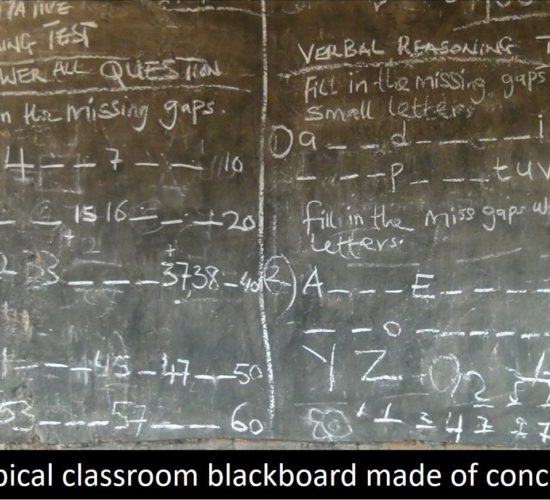 TATIVE
NING TEST
WER ALL QUESTION
n the missing gaps.
4 — — 7 — — 10
— — 15 16 — — — 20
33 — — — — 37,38 — 40
— — 45 — 47 — — 50
53 — — — 57 — — 60
VERBAL REASONING T
fill in the missing gaps
small letters
① a — — d — — — — i
— — — — p — — — t u v
fill in the miss gaps w
letters.
② A — — — E — — — —
— — o — — — — — —
Y Z
pical classroom blackboard made of conc